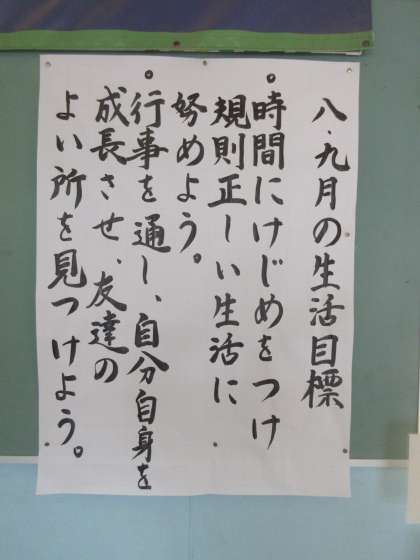 八・九月の生活目標
•時間にけじめをつけ
規則正しい生活に
努めよう。
•行事を通し、自分自身を
成長させ、友達の
よい所を見つけよう。